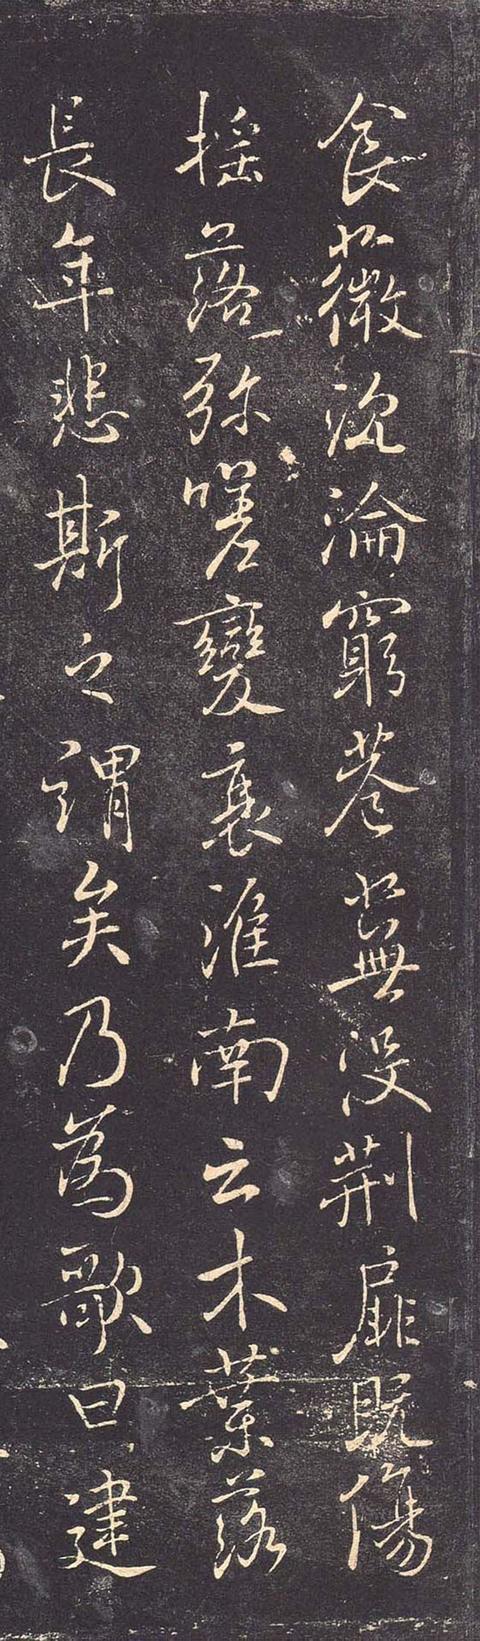 食薇沉淪窮巷蕪没荆扉既傷
揺落弥嗟變衰淮南云木葉落
長年悲斯之謂矣乃為歌曰建